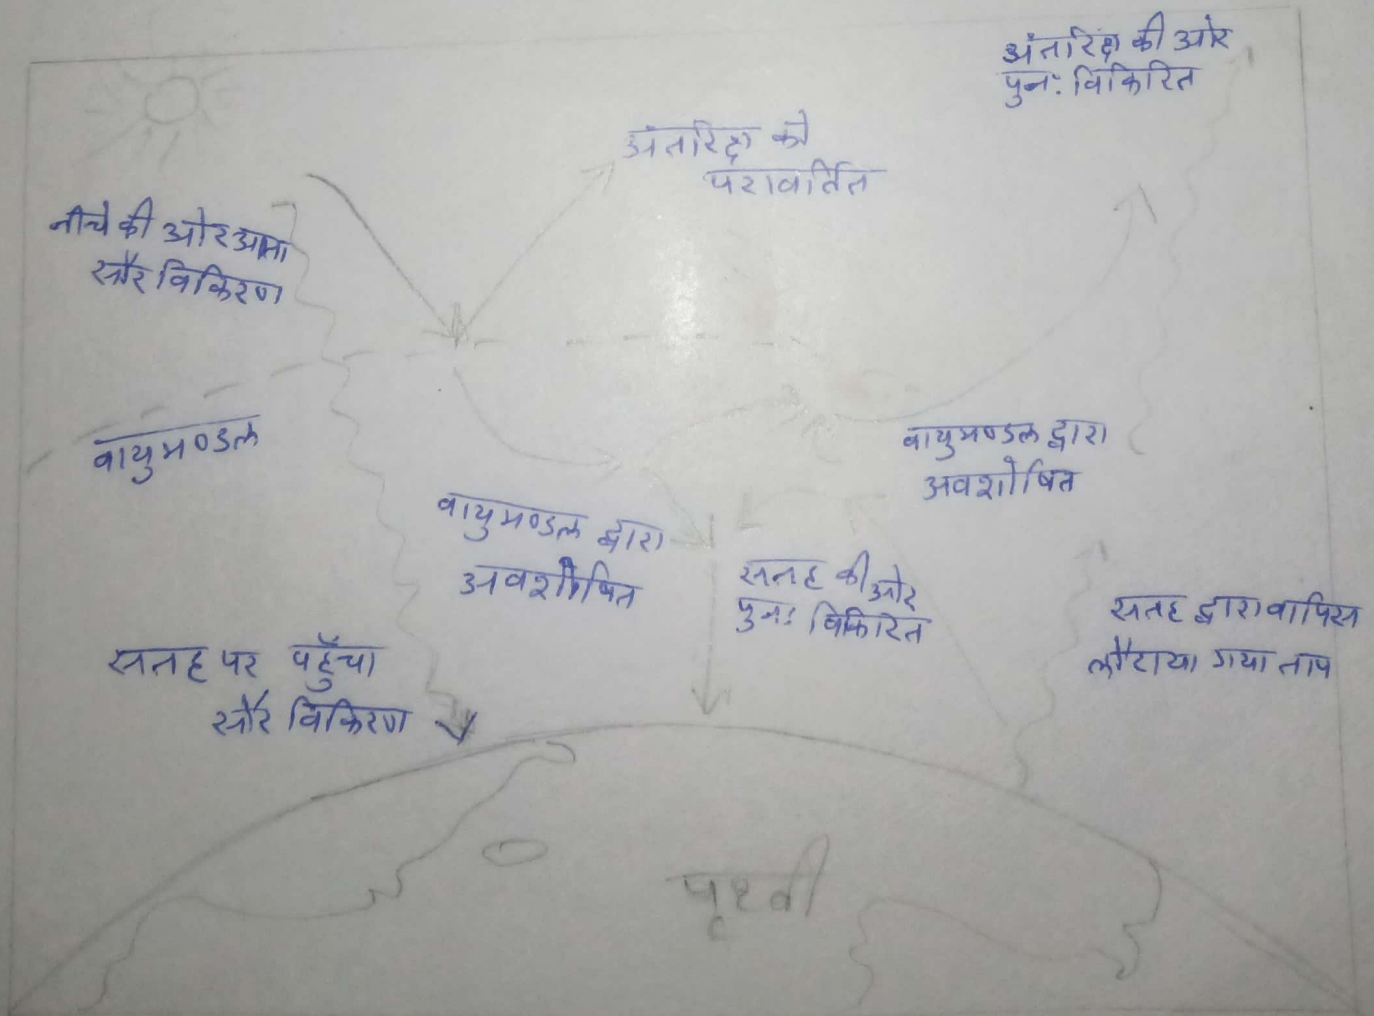 अंतरिक्ष की ओर
पुन: विकिरित
अंतरिक्ष को
परावर्तित
नीचे की ओर आता
सौर विकिरण
वायुमण्डल
वायुमण्डल द्वारा
अवशोषित
वायुमण्डल द्वारा
अवशोषित
सतह की ओर
पुन: विकिरित
सतह द्वारा वापिस
लौटाया गया ताप
सतह पर पहुँचा
सौर विकिरण
पृथ्वी